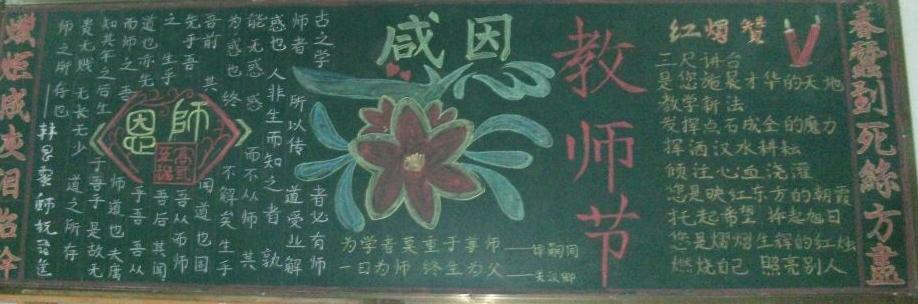 春蚕到死丝方盡
感因
教师节
师恩
古之学者必有师
师者 所以传道受业解
惑也 人非生而知之者 孰
能无惑 惑而不从师 其
为惑也 终不解矣 生乎
吾前 其闻道也固
先乎吾 吾从而师
之 生乎吾后 其闻
道也亦先乎吾 吾从
而师之 吾师道也 夫庸
知其年之先后生于吾乎 是故无
贵无贱 无长无少 道之所存
师之所存也
为学者莫重于尊师——谭嗣同
一日为师 终生为父——关汉卿
红烛赞
三尺讲台
是您施展才华的天地
教学新法
发挥点石成金的魔力
挥洒汉水耕耘
倾注心血浇灌
您是映红东方的朝霞
托起希望 捧起旭日
您是熠熠生辉的红烛
燃烧自己 照亮别人
蠟炬成灰泪始